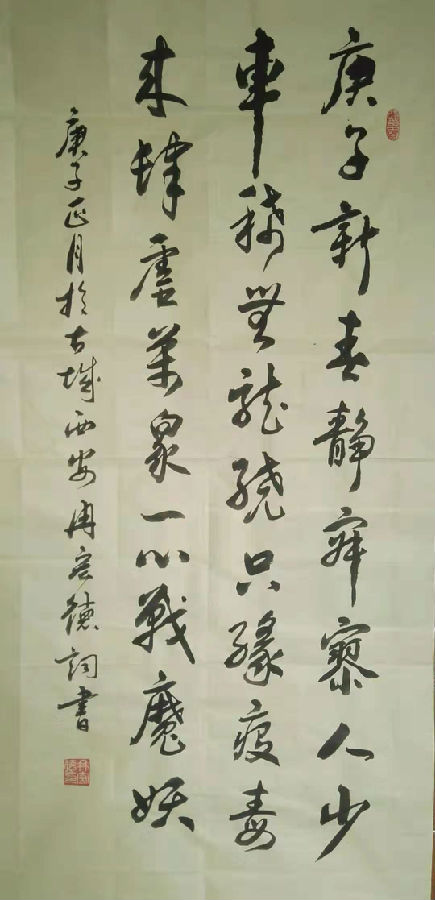 庚子新春靜寂寥人少
車稀無龍繞只緣疫毒
來肆虐萬眾一心戰魔妖
庚子正月於古城西安冉宏德詞書